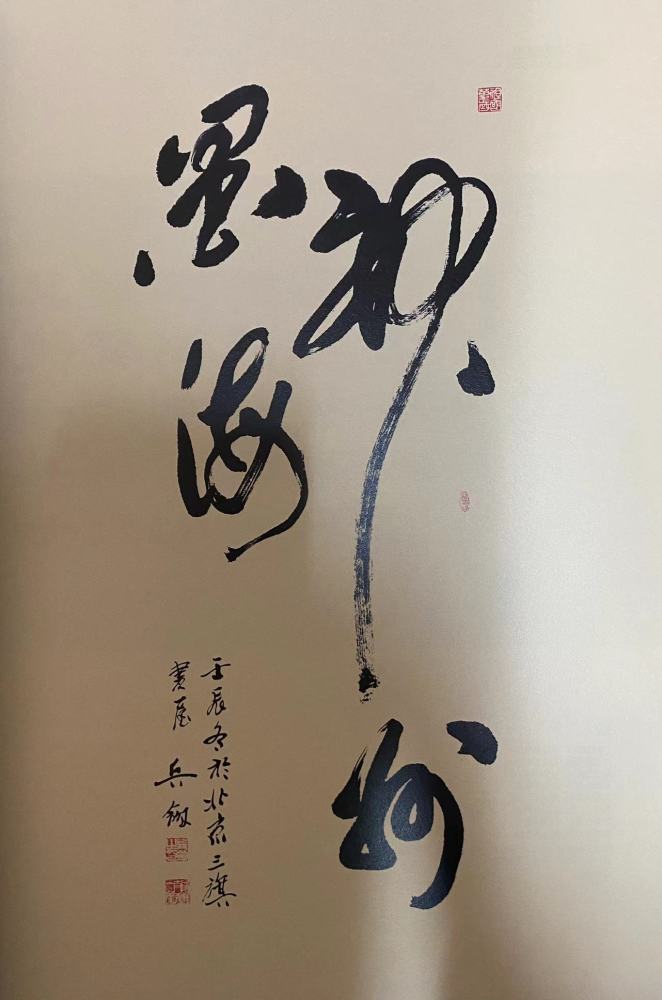 神州
墨海
壬辰冬於北京三旗
书屋 兵钢